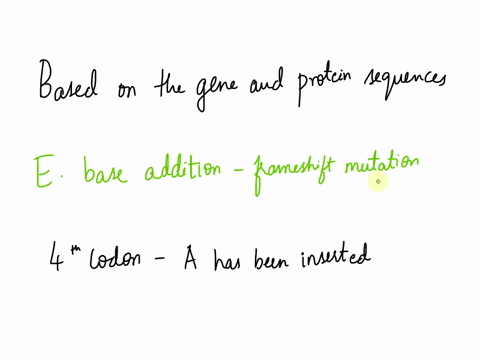 Based on the gene and protein sequences
E. base addition - frameshift mutation
4th Codon - A has been inserted